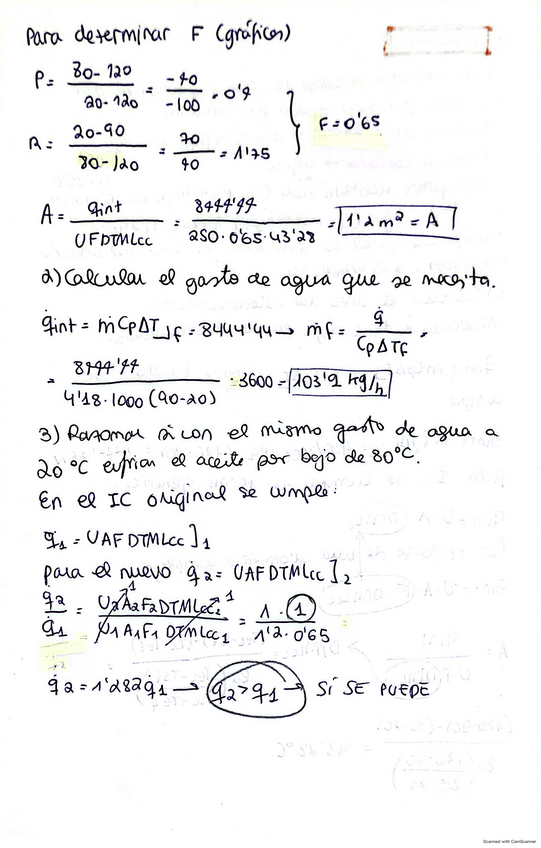 Para determinar F (gráficos)
P = 80-120 / 20-120 = -40 / -100 = 0'4
R = 20-90 / 80-120 = 70 / 40 = 1'75
F = 0'65
A = qint / UFDTMLcc = 8444'44 / 250·0'65·43'28 = 1'2 m² = A
2) Calcular el gasto de agua que se necesita.
q̇int = ṁCpΔT]f = 8444'44 → ṁf = q̇ / CpΔTf =
= 8444'44 / 4'18·1000 (90-20) ·3600 = 103'9 kg/h
3) Razonar si con el mismo gasto de agua a
20 °C enfrian el aceite por bajo de 80°C.
En el IC original se cumple:
q̇1 = UAFDTMLcc]1
para el nuevo q̇2 = UAFDTMLcc]2
q̇2 / q̇1 = U2A2F2DTMLcc2 / U1A1F1DTMLcc1 = 1·1 / 1'2·0'65
q̇2 = 1'282q̇1 → q̇2 > q̇1 → SÍ SE PUEDE
Scanned with CamScanner